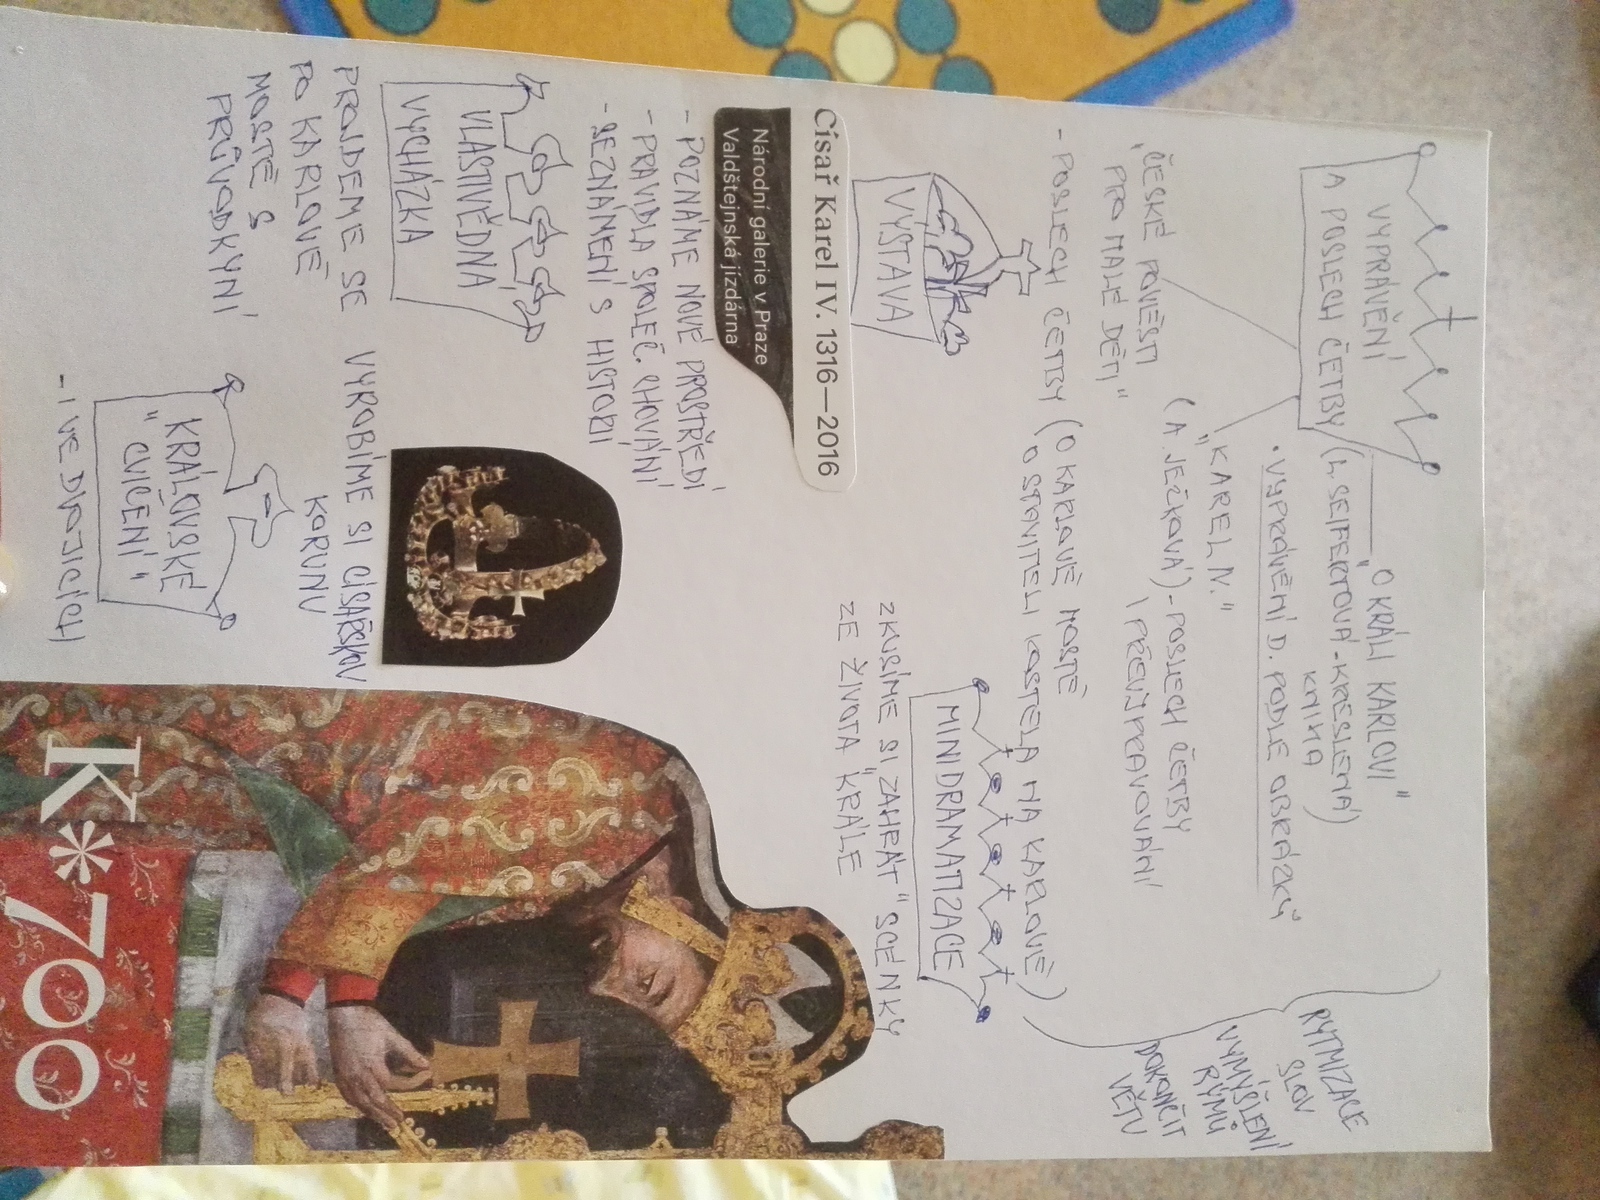 VYPRÁVĚNÍ
A POSLECH ČETBY
"O KRÁLI KARLOVI"
(H. SEIFERTOVÁ - KRESLENÁ)
KNIHA
• VYPRÁVĚNÍ D. PODLE OBRÁZKŮ
"KAREL IV."
(A JEŽKOVÁ) - POSLECH ČETBY
\ PŘEVYPRAVOVÁNÍ
"ČESKÉ POVĚSTI
PRO MALÉ DĚTI"
- POSLECH ČETBY (O KARLOVĚ MOSTĚ
O STAVITELI KOSTELA NA KARLOVĚ)
RYTMIZACE
SLOV
VYMÝŠLENÍ
RÝMŮ
DOKONČIT
VĚTU
VÝSTAVA
Císař Karel IV. 1316—2016
Národní galerie v Praze
Valdštejnská jízdárna
- POZNÁME NOVÉ PROSTŘEDÍ
- PRAVIDLA SPOLEČ. CHOVÁNÍ
- SEZNÁMENÍ S HISTORI
MINIDRAMATIZACE
ZKUSÍME SI "ZAHRÁT" SCÉNKY
ZE ŽIVOTA KRÁLE
VLASTIVĚDNÁ
VYCHÁZKA
PROJDEME SE
PO KARLOVĚ
MOSTĚ S
PRŮVODKYNÍ
VYROBÍME SI CÍSAŘSKOU
KORUNU
KRÁLOVSKÉ
"CVIČENÍ"
- I VE DVOJICÍCH
K*700